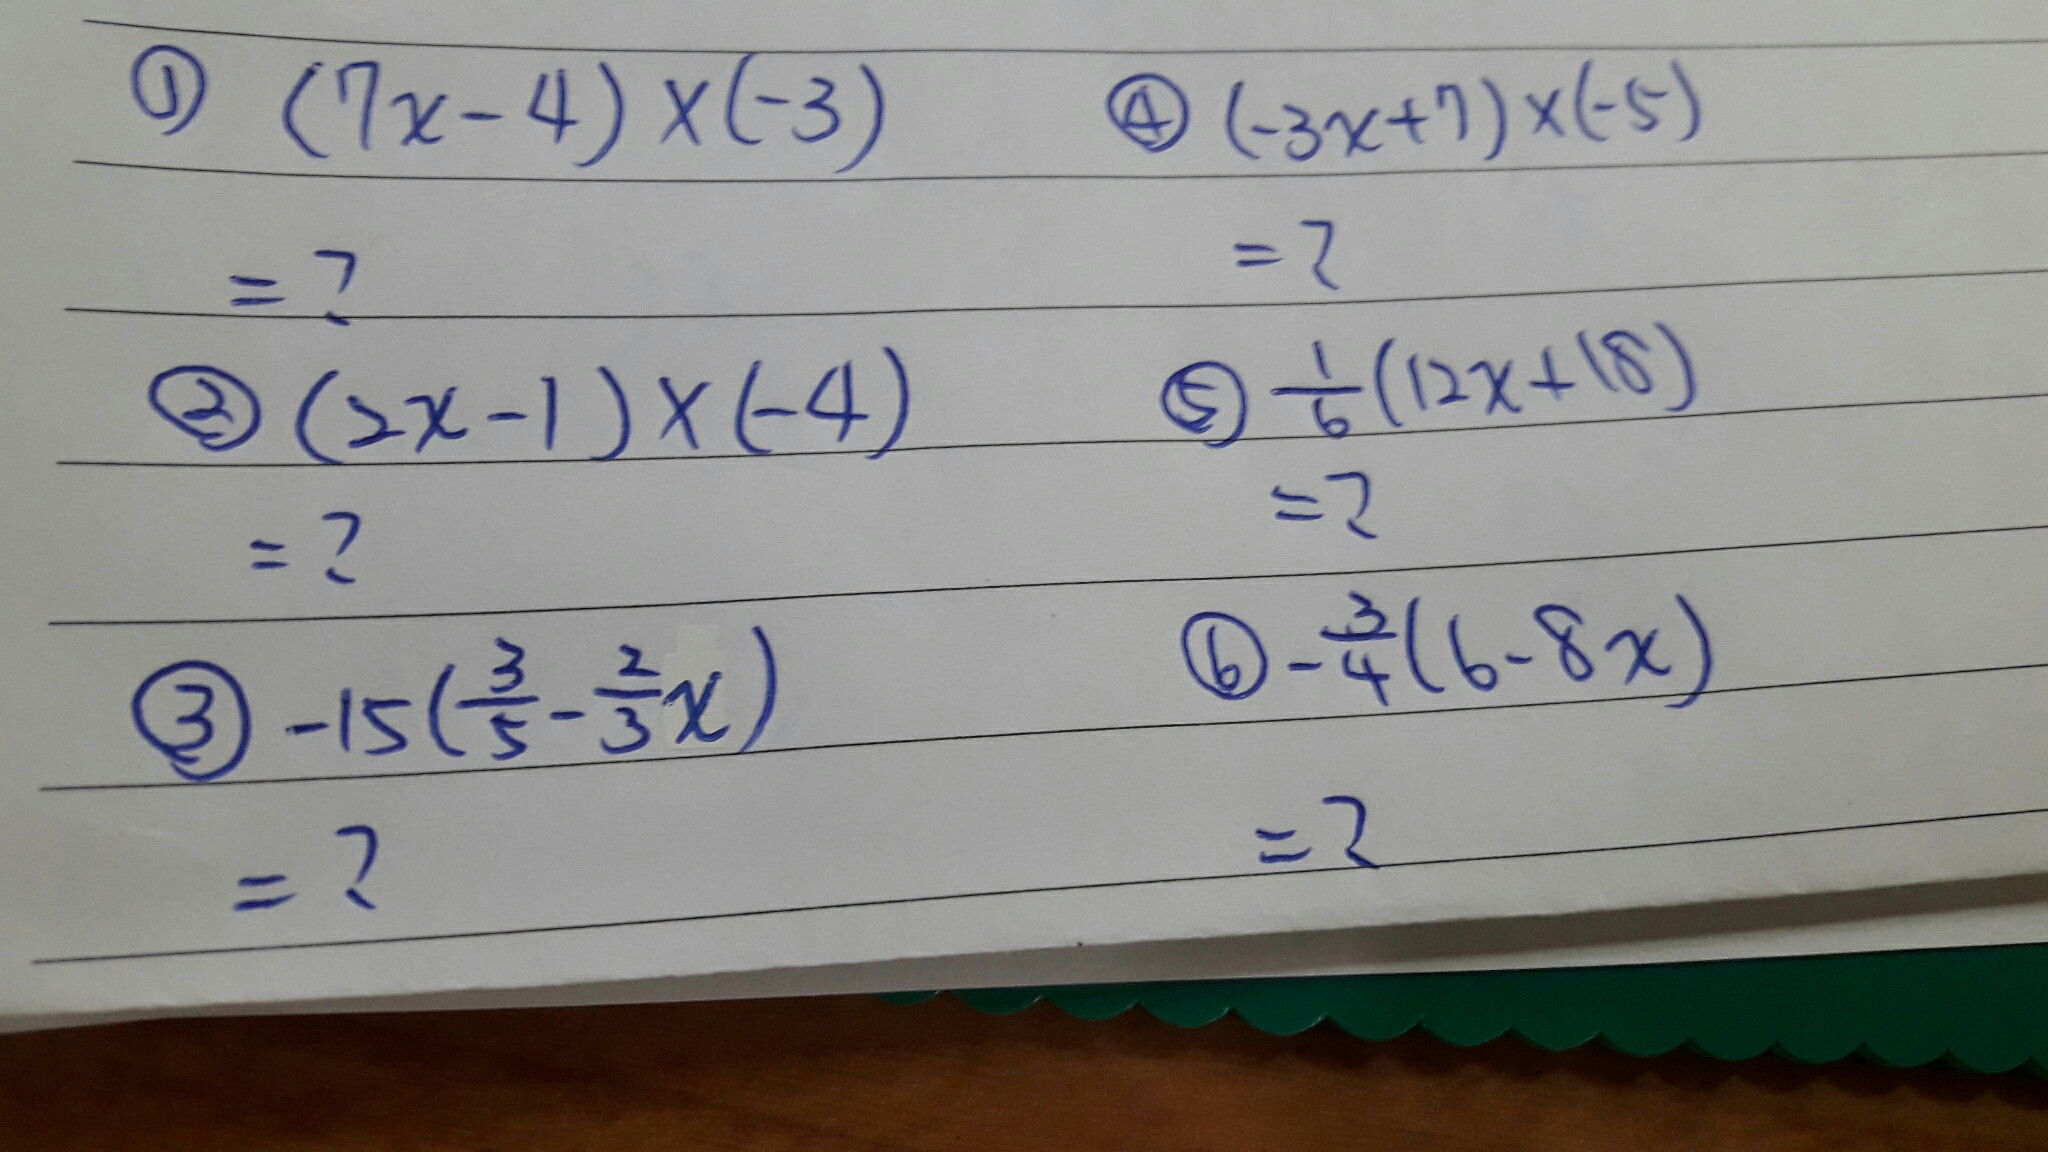 ① (7x-4)×(-3)
=?
② (2x-1)×(-4)
=?
③ -15(3/5-2/3x)
=?
④ (-3x+7)×(-5)
=?
⑤ 1/6(12x+18)
=?
⑥ -3/4(6-8x)
=?